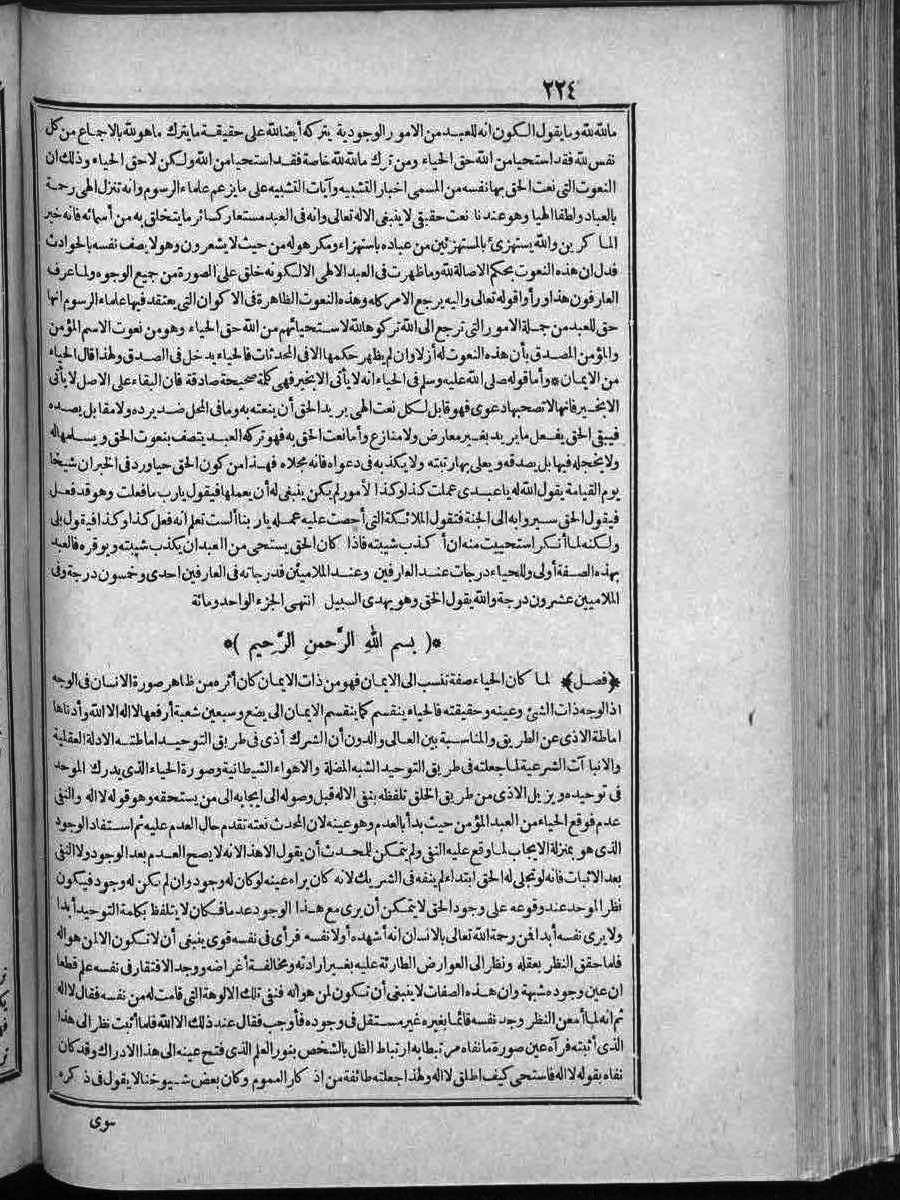 ٢٢٤
مالله لله وما يقول الكون انه للعبد من الامور الوجودية يتركه أيضا لله على حقيقة ما يترك ما هو لله بالاجماع من كل
نفس لله فقد استحيا من الله حق الحياء ومن ترك ما لله لله خاصة فقد استحيا من الله ولكن لا حق الحياء وذلك ان
النعوت التى نعت الحق بها نفسه من المسمى اخبار التشبيه وآيات التشبيه على ما يزعم علماء الرسوم وانه تنزل الهى رحمة
بالعباد ولطفا الهيا وهو عندنا نعت حقيقى لا ينبغى الا له تعالى وانه فى العبد مستعار كسائر ما يتخلق به من أسمائه فانه خير
الماكرين والله يستهزئ بالمستهزئين من عباده باستهزاء ومكر هو له من حيث لا يشعرون وهو لا يصف نفسه بالحوادث
فدل ان هذه النعوت بحكم الاصالة لله وما ظهرت فى العبد الالهى الا لكونه خلق على الصورة من جميع الوجوه ولما عرف
العارفون هذا ورأوا قوله تعالى واليه يرجع الامر كله وهذه النعوت الظاهرة فى الاكوان التى يعتقد فيها علماء الرسوم انها
حق للعبد من جملة الامور التى ترجع الى الله تركوها لله لاستحيائهم من الله حق الحياء وهو من نعوت الاسم المؤمن
والمؤمن المصدق بأن هذه النعوت له أزلا وان لم يظهر حكمها الا فى المحدثات فالحياء يدخل فى الصدق ولهذا قال الحياء
من الايمان * وأما قوله صلى الله عليه وسلم فى الحياء انه لا يأتى الا بخير فهى كلمة صحيحة صادقة فان البقاء على الاصل لا يأتى
الا بخير فانها لا تصحبها دعوى فهو قابل لكل نعت الهى يريد الحق أن ينعته به وما فى المحل ضد يرده ولا مقابل يصده
فيبقى الحق يفعل ما يريد بغير معارض ولا منازع وأما نعت الحق به فهو تركه العبد يتصف بنعوت الحق ويسلمها له
ولا يخجله فيها بل يصدقه ويعلى بها رتبته ولا يكذبه فى دعواه فانه مجلاه فهذا من كون الحق حيا ورد فى الخبر ان شيخا
يوم القيامة يقول الله له ياعبدى عملت كذا وكذا لأمور لم يكن ينبغى له أن يعملها فيقول يارب ما فعلت وهو قد فعل
فيقول الحق سيروا به الى الجنة فتقول الملائكة التى أحصت عليه عمله ياربنا ألست تعلم انه فعل كذا وكذا فيقول بلى
ولكنه لما أنكر استحييت منه ان أكذب شيبته فاذا كان الحق يستحى من العبد ان يكذب شيبته ويوقره فالعبد
بهذه الصفة أولى وللحياء درجات عند العارفين وعند الملامية فدرجاته فى العارفين احدى وخمسون درجة وفى
الملاميين عشرون درجة والله يقول الحق وهو يهدى السبيل انتهى الجزء الواحد ومائة
*( بسم الله الرَّحمنِ الرَّحيم )*
﴿فصل﴾ لما كان الحياء صفة تنسب الى الايمان فهو من ذات الايمان كان أثره من ظاهر صورة الانسان فى الوجه
اذ الوجه ذات الشئ وعينه وحقيقته فالحياء ينقسم كما ينقسم الايمان الى بضع وسبعين شعبة أرفعها لا اله الا الله وأدناها
اماطة الاذى عن الطريق والمناسبة بين العالى والدون أن الشرك أذى فى طريق التوحيد اماطته الادلة العقلية
والانباآت الشرعية لما جعلته فى طريق التوحيد الشبه المضلة والاهواء الشيطانية وصورة الحياء الذى يدرك الموحد
فى توحيده ويزيل الاذى من طريق الخلق تلفظه بنفى الاله قبل وصوله الى ايجابه الى من يستحقه وهو قوله لا اله والنفى
عدم فوقع الحياء من العبد المؤمن حيث بدأ بالعدم وهو عينه لان المحدث نعته تقدم حال العدم عليه ثم استفاد الوجود
الذى هو بمنزلة الايجاب لما وقع عليه النفى ولم يتمكن للمحدث أن يقول الا هذا لانه لا يصح العدم بعد الوجود ولا النفى
بعد الاثبات فانه لو تجلى له الحق ابتداء لم ينفه فى الشريك لانه كان يراه عينه لو كان له وجود وان لم يكن له وجود فيكون
نظر الموحد عند وقوعه على وجود الحق لا يتمكن أن يرى مع هذا الوجود عدما فكان لا يتلفظ بكلمة التوحيد أبدا
ولا يرى نفسه أبدا فمن رحمة الله تعالى بالانسان انه أشهده أولا نفسه فرأى فى نفسه قوى ينبغى أن لا تكون الا لمن هو اله
فلما حقق النظر بعقله ونظر الى العوارض الطارئة عليه بغير ارادته ومخالفة أغراضه ووجد الافتقار فى نفسه علم قطعا
ان عين وجوده شبهة وان هذه الصفات لا ينبغى أن تكون لمن هو اله فنفى تلك الالوهة التى قامت له من نفسه فقال لا اله
ثم انه لما أمعن النظر وجد نفسه قائما بغيره غير مستقل فى وجوده فأوجب فقال عند ذلك الا الله فلما أثبت نظر الى هذا
الذى أثبته فرآه عين صورة ما نفاه مرتبطا به ارتباط الظل بالشخص بنور العلم الذى فتح عينه الى هذا الادراك وقد كان
نفاه بقوله لا اله فاستحى كيف اطلق لا اله ولهذا جعلته طائفة من اذكار العموم وكان بعض شيوخنا لا يقول فى ذكره
سوى